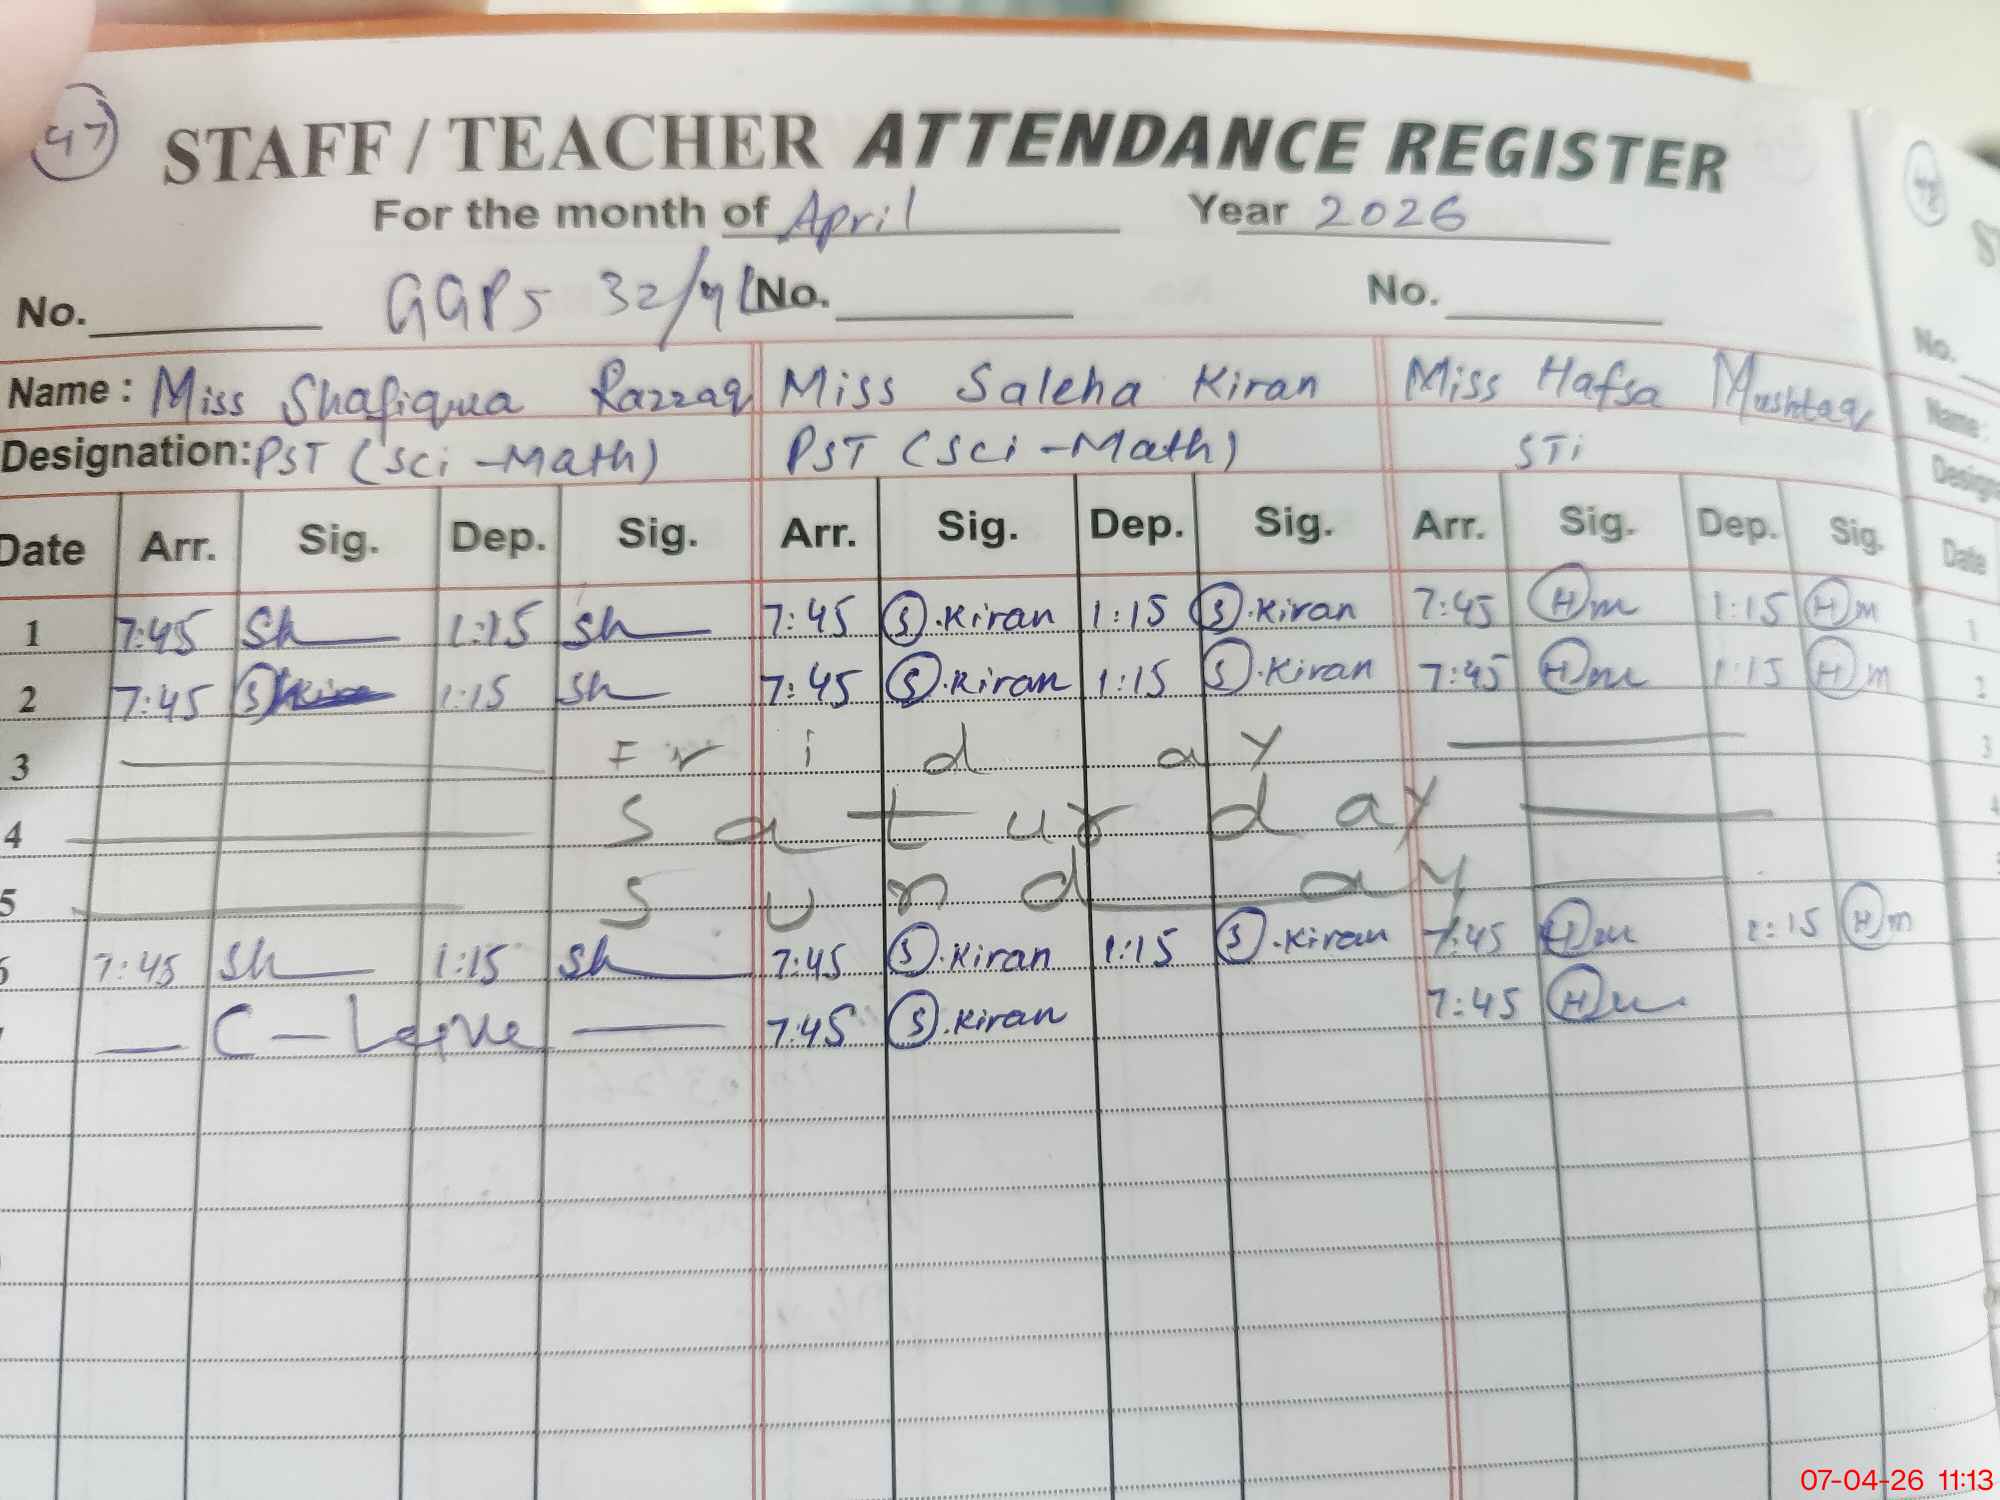 47
STAFF / TEACHER ATTENDANCE REGISTER
For the month of April Year 2026
No. GGPS 32/ No. No.
Name : Miss Shafiqua Razzaq Miss Saleha Kiran Miss Hafsa Mushtaq
Designation: PST (Sci-Math) PST (Sci-Math) STi
Date Arr. Sig. Dep. Sig. Arr. Sig. Dep. Sig. Arr. Sig. Dep. Sig.
1 7:45 Sh 1:15 Sh 7:45 S.Kiran 1:15 S.Kiran 7:45 Hm 1:15 Hm
2 7:45 1:15 Sh 7:45 S.Kiran 1:15 S.Kiran 7:45 Hm 1:15 Hm
3 Friday
4 Saturday
5 Sunday
7:45 Sh 1:15 Sh 7:45 S.Kiran 1:15 S.Kiran 7:45 Hm 1:15 Hm
C-Leave 7:45 S.Kiran 7:45 Hm
48
No.
Name:
Date
1
2
3
07-04-26 11:13